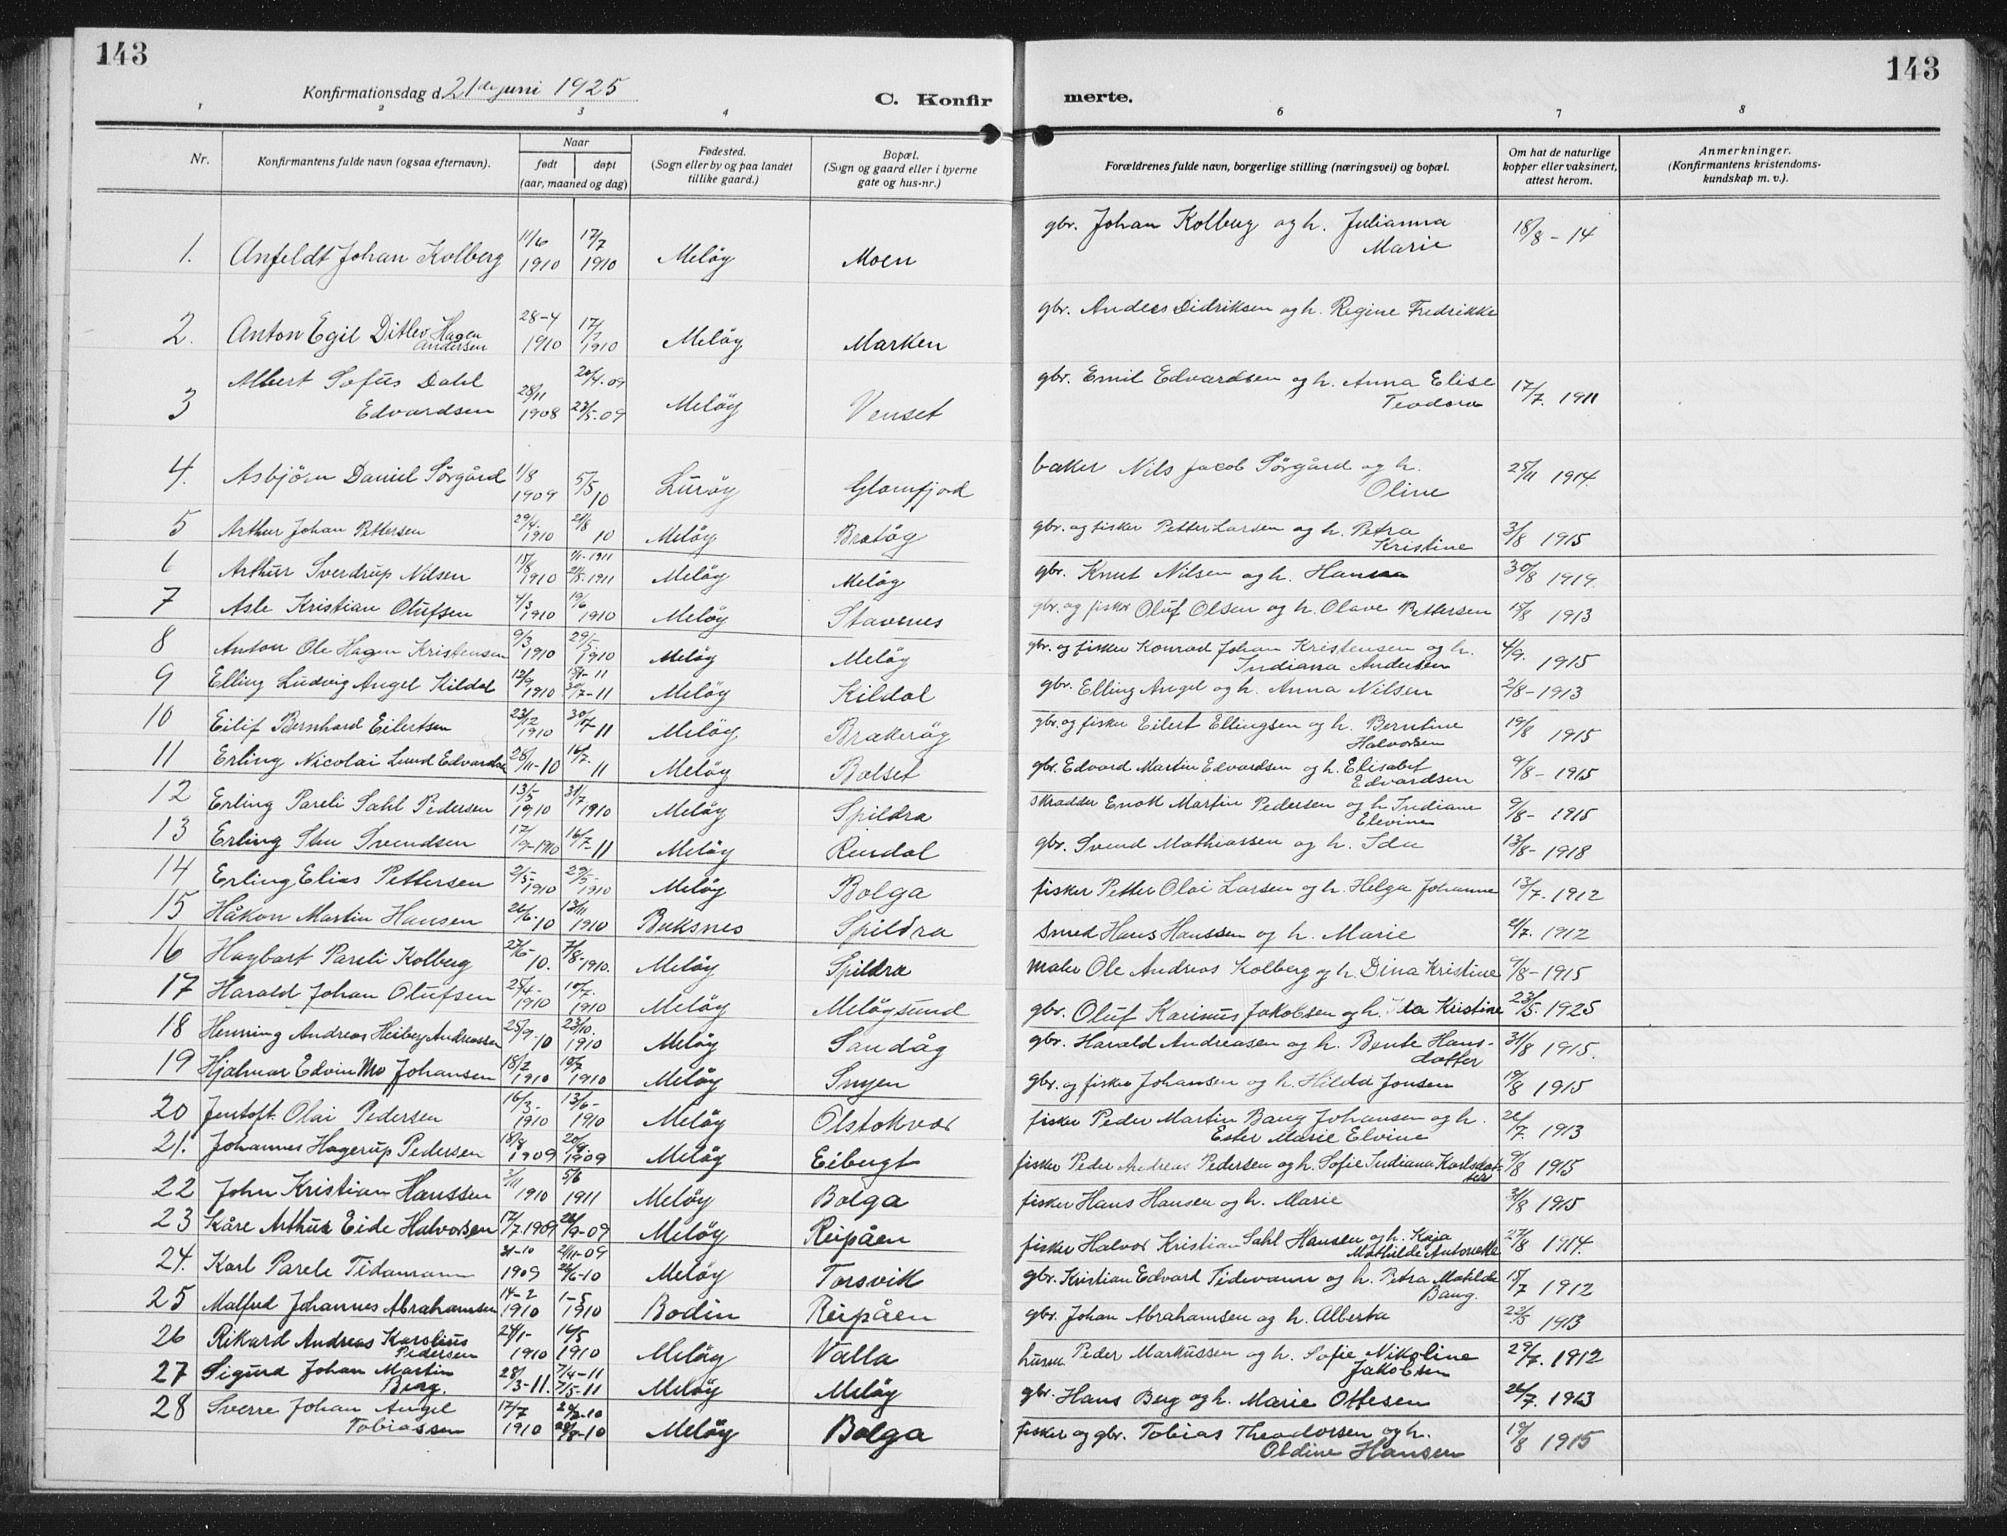 143
143
Konfirmationsdag d. 21de juni 1925
C. Konfir
merte.
1 2 3 4 6 7 8
Nr.
Konfirmantens fulde navn (ogsaa efternavn).
Naar
født
døpt
(aar, maaned og dag)
Fødested.
(Sogn eller by og paa landet
tillike gaard.)
Bopæl.
(Sogn og gaard eller i byerne
gate og hus-nr.)
Forældrenes fulde navn, borgerlige stilling (næringsvei) og bopæl.
Om hat de naturlige
kopper eller vaksinert,
attest herom.
Anmerkninger.
(Konfirmantens kristendoms-
kundskap m. v.).
1. Anfeldt Johan Kolberg 11/6 1910 17/7 1910 Meløy Moen gbr. Johan Kolberg og h. Julianna
Marie 18/8 - 14
2. Anton Egil Ditlev Hagen
Andersen 28-4 1910 17/7 1910 Meløy Marken gbr. Anders Didriksen og h. Regine Fredrikke
3 Albert Sofus Dahl
Edvardsen 28/11 1908 20/4-09 23/5-09 Meløy Venset gbr. Emil Edvardsen og h. Anna Elise
Teodora 17/7. 1911
4. Asbjørn Daniel Sørgård 1/8 1909 5/5 10 Lurøy Glomfjord baker Nils Jacob Sørgård og h.
Oline 25/11 1914
5 Arthur Johan Pettersen 29/4. 1910 21/8 10 Meløy Bratøy gbr. og fisker Petter Larsen og h. Petra
Kristine 3/8 1915
6 Arthur Sverdrup Nilsen 15/8 1910 21/5-1911 Meløy Meløy gbr. Knut Nilsen og h. Hanna 30/8 1919.
7 Asle Kristian Olufsen 4/3 1910 19/6 1910 Meløy Stavenes gbr. og fisker Oluf Olsen og h. Olave Pettersen 15/8 1913
8 Anton Ole Hagen Kristensen 9/3 1910 29/5. 1910 Meløy Meløy gbr. og fisker Konrad Johan Kristensen og h.
Indiana Andersen 4/9. 1915
9 Elling Ludvig Angel Kildal 12/9 1910 30/7-11 Meløy Kildal gbr. Elling Angel og h. Anna Nilsen 2/8-1913
10 Eilif Bernhard Eilertsen 23/12 1910 30/7 11 Meløy Brakerøy gbr. og fisker Eilert Ellingsen og h. Berntine
Halvorsen 19/8 1915
11 Erling Nicolai Lund Edvardsen 28/11-10 16/7. 11 Meløy Bolset gbr. Edvard Martin Edvardsen og h. Elisabet
Edvardsen 9/8 - 1915
12 Erling Pareli Sahl Pedersen 13/5 1910 31/7 1910 Meløy Spildra Skrædder Enok Martin Pedersen og h Indiane
Elevine 9/8- 1915
13 Erling Sten Svendsen 17/9-1910 16/7-11 Meløy Reindal gbr. Svend Mathiassen og h. Ida 13/8- 1918
14 Erling Elias Pettersen 2/5- 1910 29/5- 1910 Meløy Bolga fisker Petter Olai Larsen og h. Helga Johanne 13/7. 1912
15 Håkon Martin Hansen 26/6-10 13/11 1910 Buksnes Spildra Smed Hans Hanssen og h. Marie 21/7. 1912
16 Hagbart Pareli Kolberg 27/6- 10. 7/8-1910. Meløy Spildra maler Ole Andreas Kolberg og h. Dina Kristine 9/8-1915
17 Harald Johan Olufsen 25/4- 1910 10/7. 1910 Meløy Meløysund gbr. Oluf Karinus Jakobsen og h. Ida Kristine 23/5. 1925
18 Henning Andreas Heiberg Andreassen 25/9-10 23/10. 1910 Meløy Sandåg gbr. Harald Andreasen og h. Bente Hans-
datter 31/8 1915.
19 Hjalmar Edvin Mo Johansen 18/2 1910 10/7 1910 Meløy Smyen gbr. og fisker Johansen og h. Hilda Jonsen 19/8 1915
20 Jentoft Olai Pedersen 16/3- 1910 13/6- 1910 Meløy Olstokvor fisker Peder Martin Bang Johansen og h.
Ester Marie Elvine 26/7. 1913
21. Johannes Hagerup Pedersen 18/8 1909 20/9 1909 Meløy Eibergt fisker Peder Andreas Pedersen og h. Sofie Indiana Karlsdat-
ter 9/8 1915
22 John Kristian Hanssen 3/11 1910 5/6 1911 Meløy Bolga fisker Hans Hansen og h. Marie 31/8 1915
23 Kåre Arthur Eide Halvorsen 17/7-1909 26/9-09 Meløy Reipåen fisker Halvor Kristian Sahl Hansen og h. Kaja
Mathilde Antonette 27/8 1914.
24. Karl Parele Tidemann 31-10 1909 21/11-09 26/6-10 Meløy Torsvik gbr. Kristian Edvard Tidemann og h. Petra Matilde
Bang. 15/7 1912
25 Malfred Johannes Abrahamsen 14-2 1910 1-5 1910 Bodin Reipåen gbr. Johan Abrahamsen og h. Alberta 22/5 1913
26 Rikard Andreas Karolius
Pedersen 24/1- 1910 16/5 1910 Meløy Valla husm. Peder Markussen og h. Sofie Nikoline
Jakobsen 29/7. 1912
27 Sigurd Johan Martin
Berg. 28/3-11. 7/4-11 7/5-11 Meløy Meløy gbr. Hans Berg og h. Marie Ottesen 26/7. 1913
28 Sverre Johan Angel
Tobiassen 17/7 1910 28/8-10 Meløy Bolga fisker og gbr. Tobias Theodorsen og h.
Oldine Hansen 19/8 1915